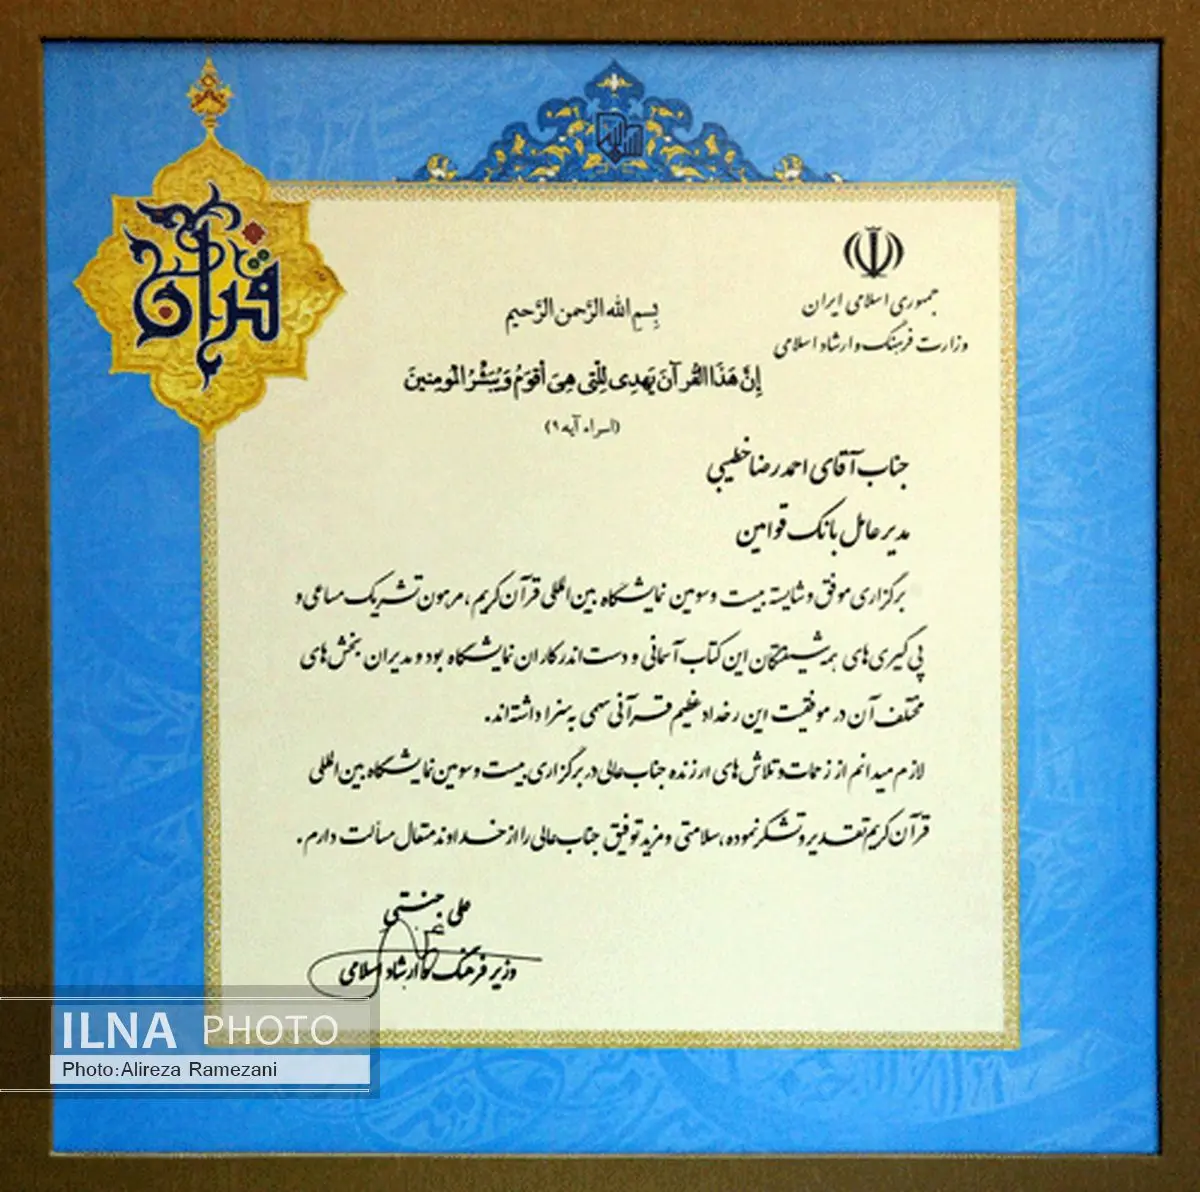 قرآن
جمهوری اسلامی ایران
وزارت فرهنگ و ارشاد اسلامی
بِسمِ الله الرَّحمن الرَّحیم
إِنَّ هَذَا القُرآنَ یَهدِی لِلَّتی هِیَ أَقوَمُ وَیُبَشِّرُ المُومِنینَ
(اسراء آیه ۹)
جناب آقای احمدرضا خطیبی
مدیر عامل بانک قوامین
برگزاری موفق و شایسته بیست و سومین نمایشگاه بین المللی قرآن کریم، مرهون تشریک مساعی و
پی گیری های همه شیفتگان این کتاب آسمانی و دست اندرکاران نمایشگاه بود و مدیران بخش های
مختلف آن در موفقیت این رخداد عظیم قرآنی سهمی به سزا داشته اند.
لازم میدانم از زحمات و تلاش های ارزنده جناب عالی در برگزاری بیست و سومین نمایشگاه بین المللی
قرآن کریم تقدیر و تشکر نموده، سلامتی و مزید توفیق جناب عالی را از خداوند متعال مسألت دارم.
علی جنتی
وزیر فرهنگ و ارشاد اسلامی
ILNA PHOTO
Photo:Alireza Ramezani